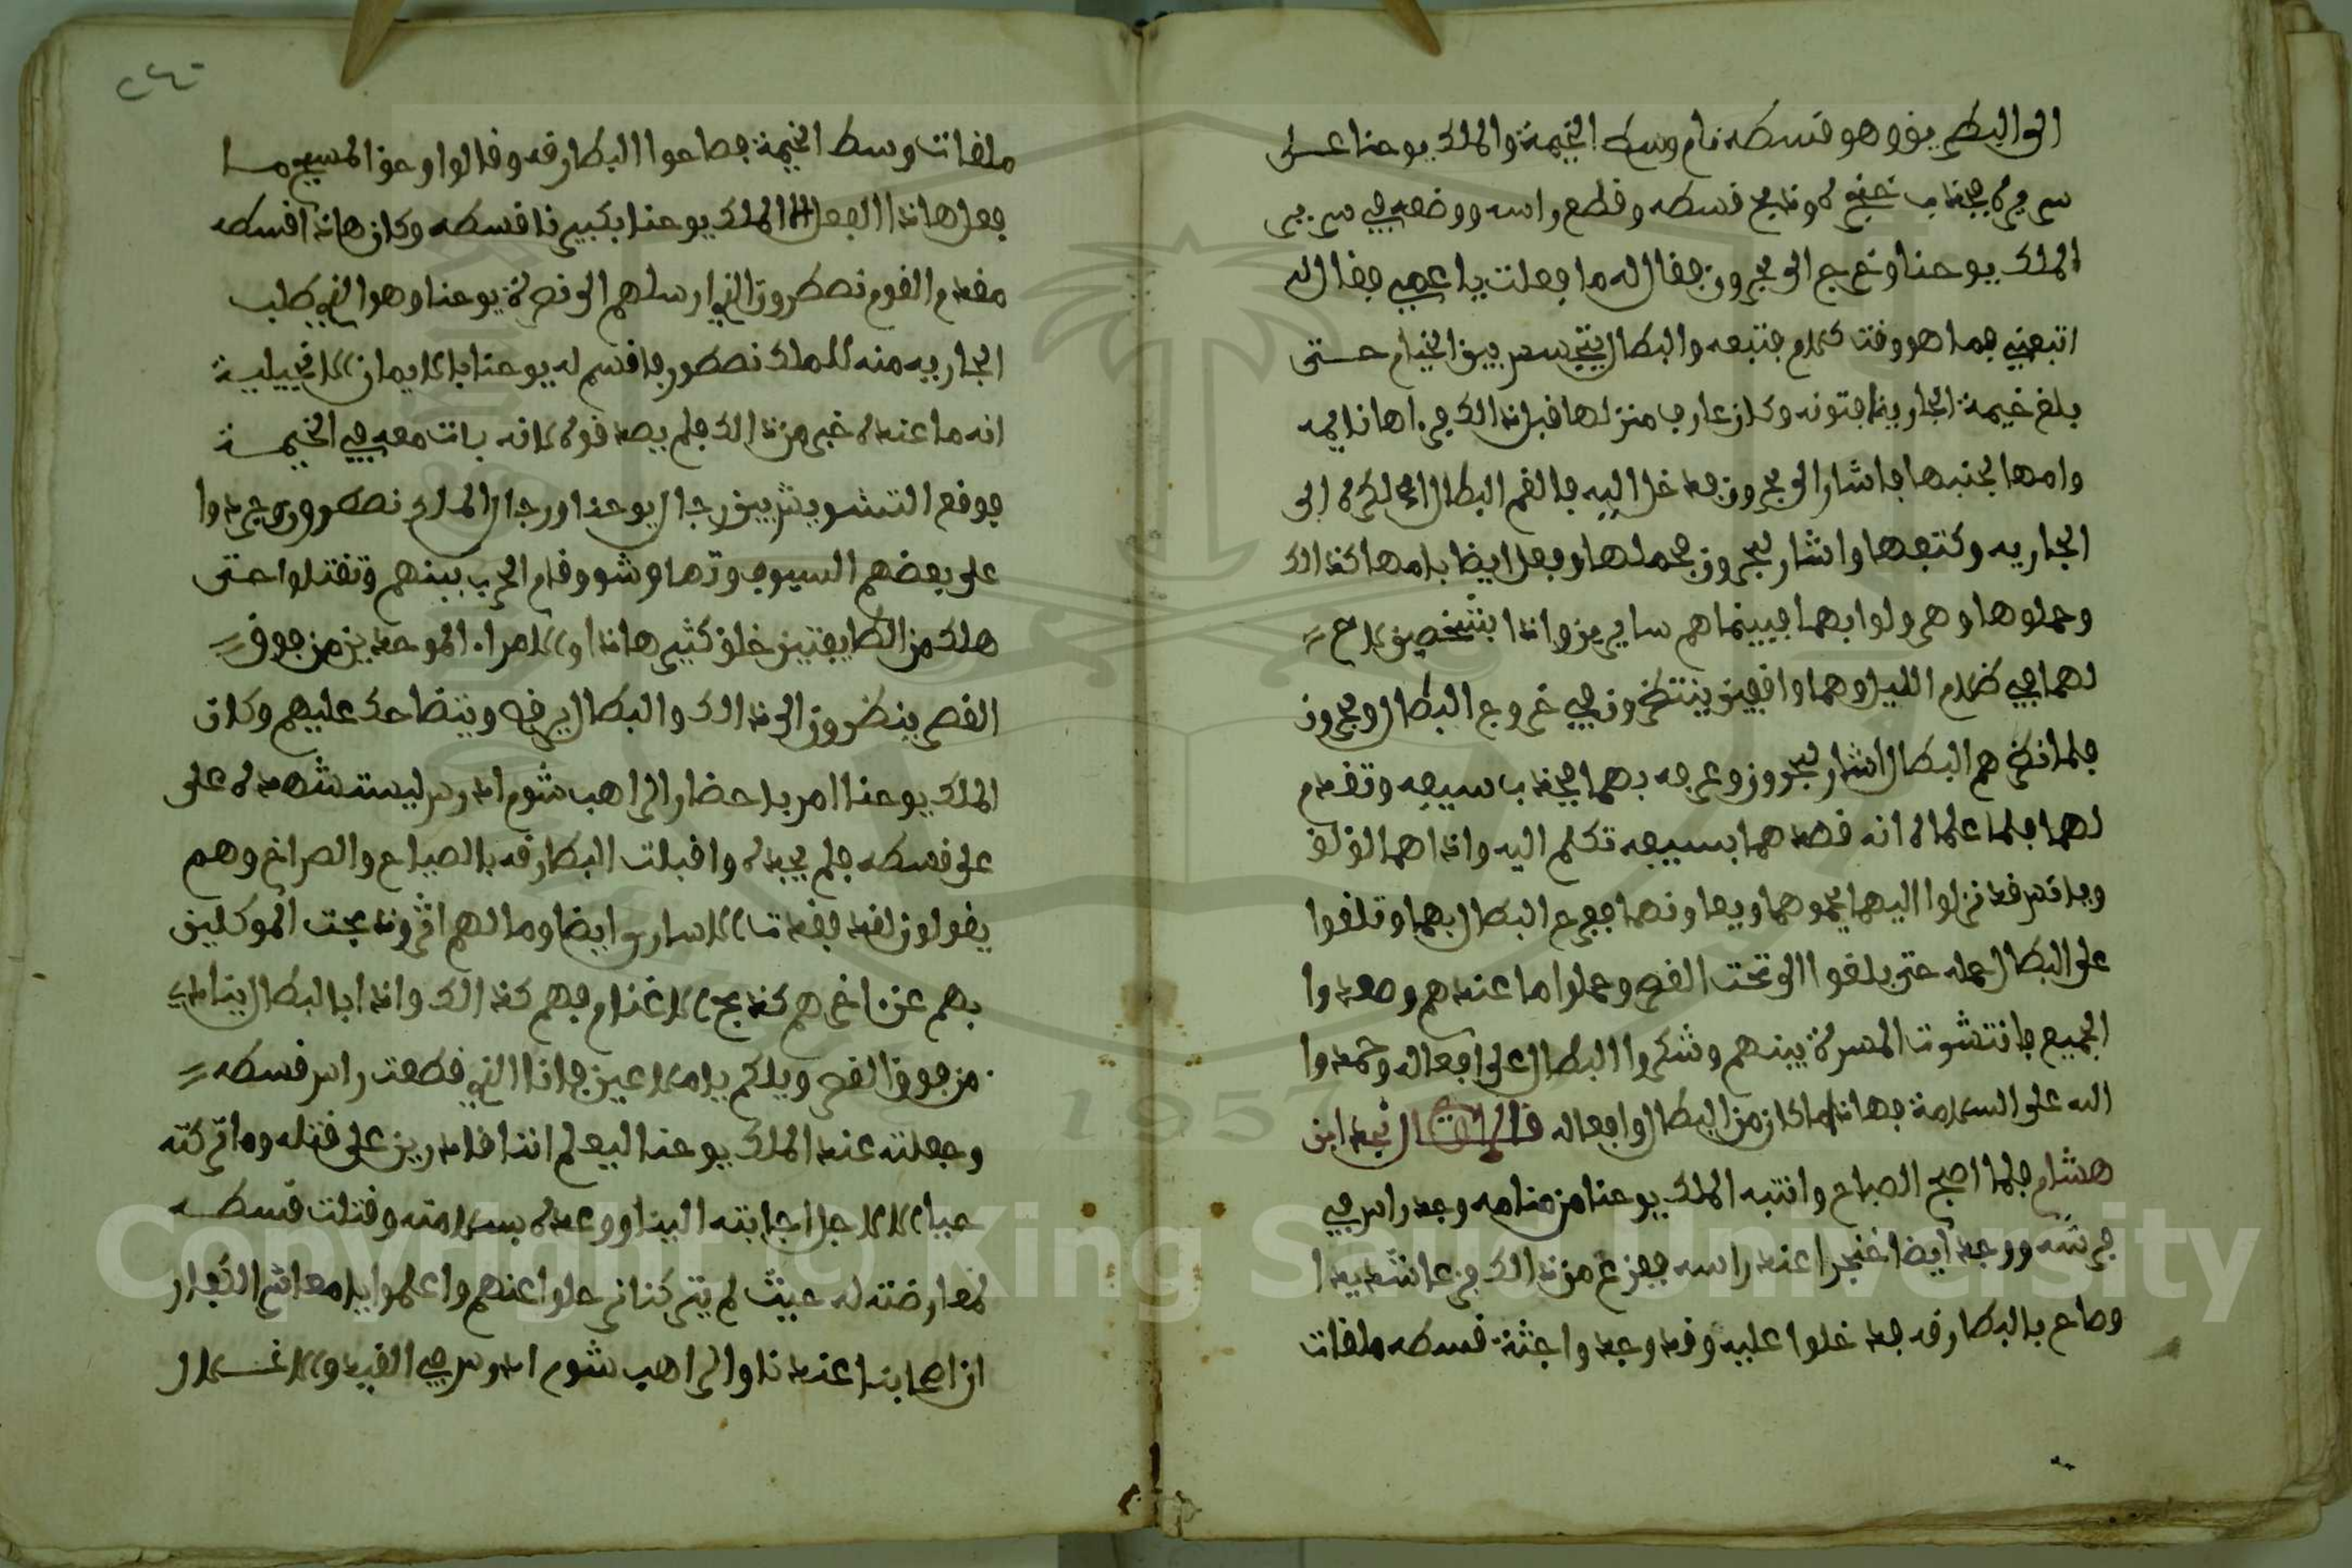 الى البطريق وهو قسطه نام وسط الخيمة والملك يوحنا على
سريره فجذب خنجره وذبح قسطه وقطع راسه ووضعه في سرير
الملك يوحنا وخرج الى بحرون فقال له ما فعلت يا عمي فقال له
اتبعني فما هو وقت كلام فتبعه والبطال يتجسس بين الخيام حتى
بلغ خيمة الجارية فتونه وكان عارف منزلها قبل ذالك فراها نايمه
وامها بجنبها فاشار الى بحرون فدخل اليه فالقم البطال الاكره الى
الجاريه وكتفها واشار لبحرون فحملها وفعل ايضا بامها كذالك
وحملوها وهرولوا بهما فبينما هم سايرين واذا بشخصين لاح
لهما في ظلام الليل وهما واقفين ينتظرون في خروج البطال وبحرون
فلما نظرهم البطال اشار لبحرون وعرفه بهما فجذب سيفه وتقدم
لهما فلما علما انه قصدهما بسيفه تكلم اليه واذا هما لولو
وفانس قد نزلوا اليهما يحموهما ويعاونهما ففرح البطال بهما وتلقوا
على البطال حمله حتى بلغوا الى تحت القصر وحملوا ما عندهم وصعدوا
الجميع فانتشوت المسرة بينهم وشكروا البطال على افعاله وحمدوا
الله على السلامة فهاذا ما كان من البطال وافعاله قال الراوي نجد ابن
هشام فلما اصبح الصباح وانتبه الملك يوحنا من منامه وجد راس في
فرشه ووجد ايضا خنجرا عند راسه ففزع من ذالك فزعا شديدا
وصاح بالبطارقه فدخلوا عليه وقد وجدوا جثة قسطه ملقات
٢٤٥
ملقات وسط الخيمة فصاحوا البطارقه وقالوا وحق المسيح ما
فعل هاذا الفعل الا الملك يوحنا بكبيرنا قسطه وكان هاذا قسطه
مقدم القوم نصطرون الذي ارسلهم الى نصرة يوحنا وهو الذي طلب
الجاريه منه للملك نصطور فاقسم له يوحنا بالايمان الانجيلية
انه ما عنده خبر من ذالك فلم يصدقوه لانه بات معه في الخيمة
فوقع التشويش بين رجال يوحنا ورجال الملك نصطور وجردوا
على بعضهم السيوف وتهاوشو وقام الحرب بينهم وتقتلوا حتى
هلك من الطايفتين خلق كثير هاذا والامراء الموحدين من فوق
القصر ينظرون الى ذالك والبطال يرقص ويتضاحك عليهم وكان
الملك يوحنا امر باحضار الراهب شوم ادرس ليستشهده على
على قسطه فلم يجده واقبلت البطارقه بالصياح والصراخ وهم
يقولون لقد فقدت الاسارى ايضا وما لهم اثر وذبحت الموكلين
بهم عن اخرهم كذبح الاغنام فهم كذالك واذا بالبطال ينادي
من فوق القصر ويلكم يا ملاعين فانا الذي قطعت راس قسطه
وجعلته عند الملك يوحنا ليعلم اننا قادرين على قتله وما تركته
حياء الا لاجل اجابته الينا ووعده بسلامته وقتلت قسطه
لمعارضته له حيث لم يتركنا نرحلوا عنهم واعلموا يا معاشر الكفار
ان اصحابنا عندنا والراهب شوم ادرس في القيد والاغلال